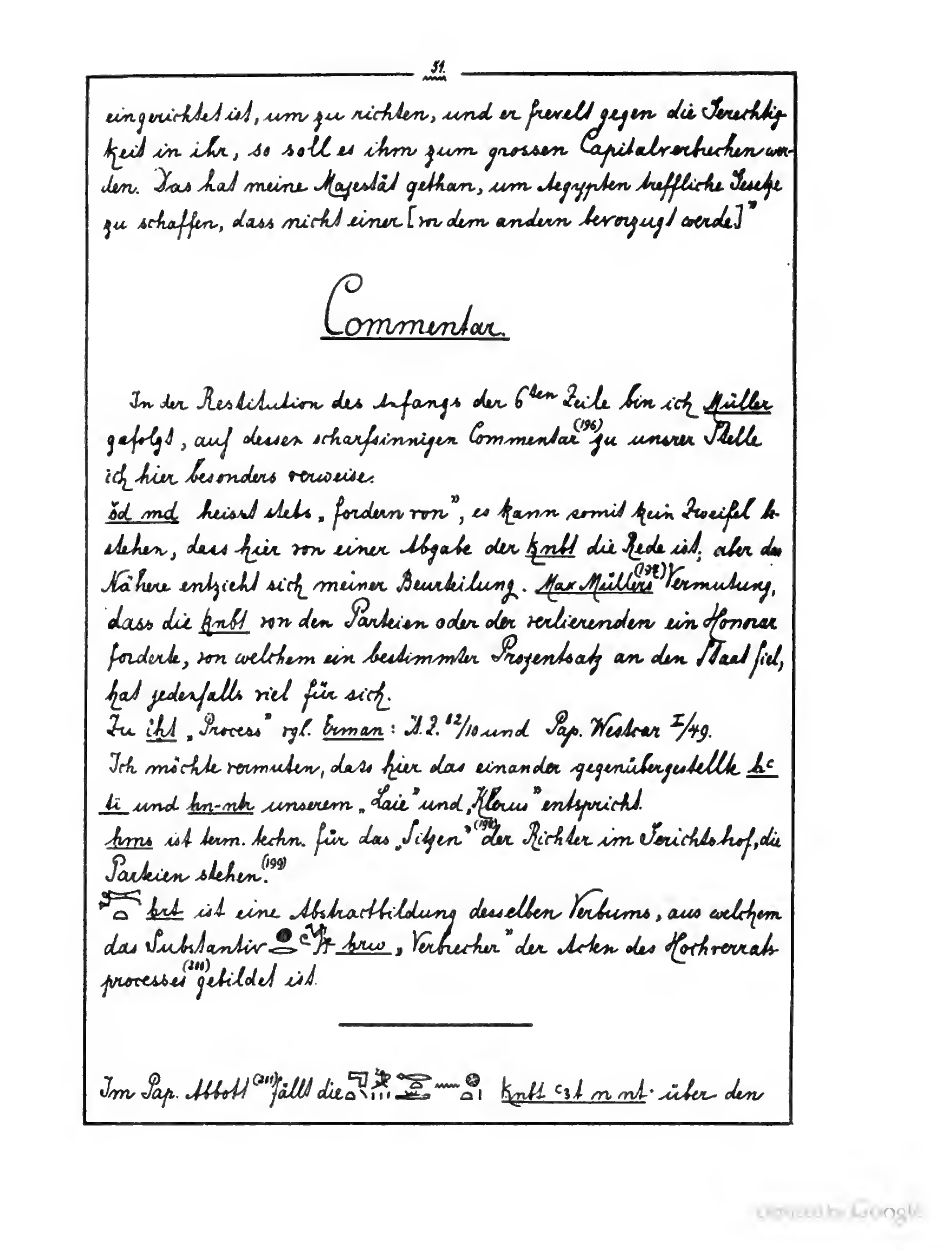 51.
eingerichtet ist, um zu richten, und er frevelt gegen die Gerechtig-
keit in ihr, so soll es ihm zum grossen Capitalverbrechen wer-
den. Das hat meine Majestät gethan, um Aegypten treffliche Gesetze
zu schaffen, dass nicht einer [vor dem andern bevorzugt werde]"
Commentar.
In der Restitution des Anfangs der 6ten Zeile bin ich Müller
gefolgt, auf dessen scharfsinnigen Commentar (196) zu unserer Stelle
ich hier besonders verweise.
šd md heisst stets „fordern von", es kann somit kein Zweifel be-
stehen, dass hier von einer Abgabe der knbt die Rede ist, aber das
Nähere entzieht sich meiner Beurteilung. Max Müllers Vermutung,
dass die knbt von den Parteien oder der verlierenden ein Honorar
forderte, von welchem ein bestimmter Prozentsatz an den Staat fiel,
hat jedenfalls viel für sich.
Zu iht „Process" vgl. Erman: Ä.Z. 82/10 und Pap. Westcar I/49.
Ich möchte vermuten, dass hier das einander gegenübergestellte ḥc
ti und hn-ntr unserem „Laie" und „Klerus" entspricht.
hms ist term. techn. für das „Sitzen" der Richter im Gerichtshof, die
Parteien stehen. (199)
brt ist eine Abstractbildung desselben Verbums, aus welchem
das Substantiv hrw „Verbrecher" der Acten des Hochverrats-
processes gebildet ist.
Im Pap. Abbott fällt die knbt c3t n nt über den
Digitized by Google